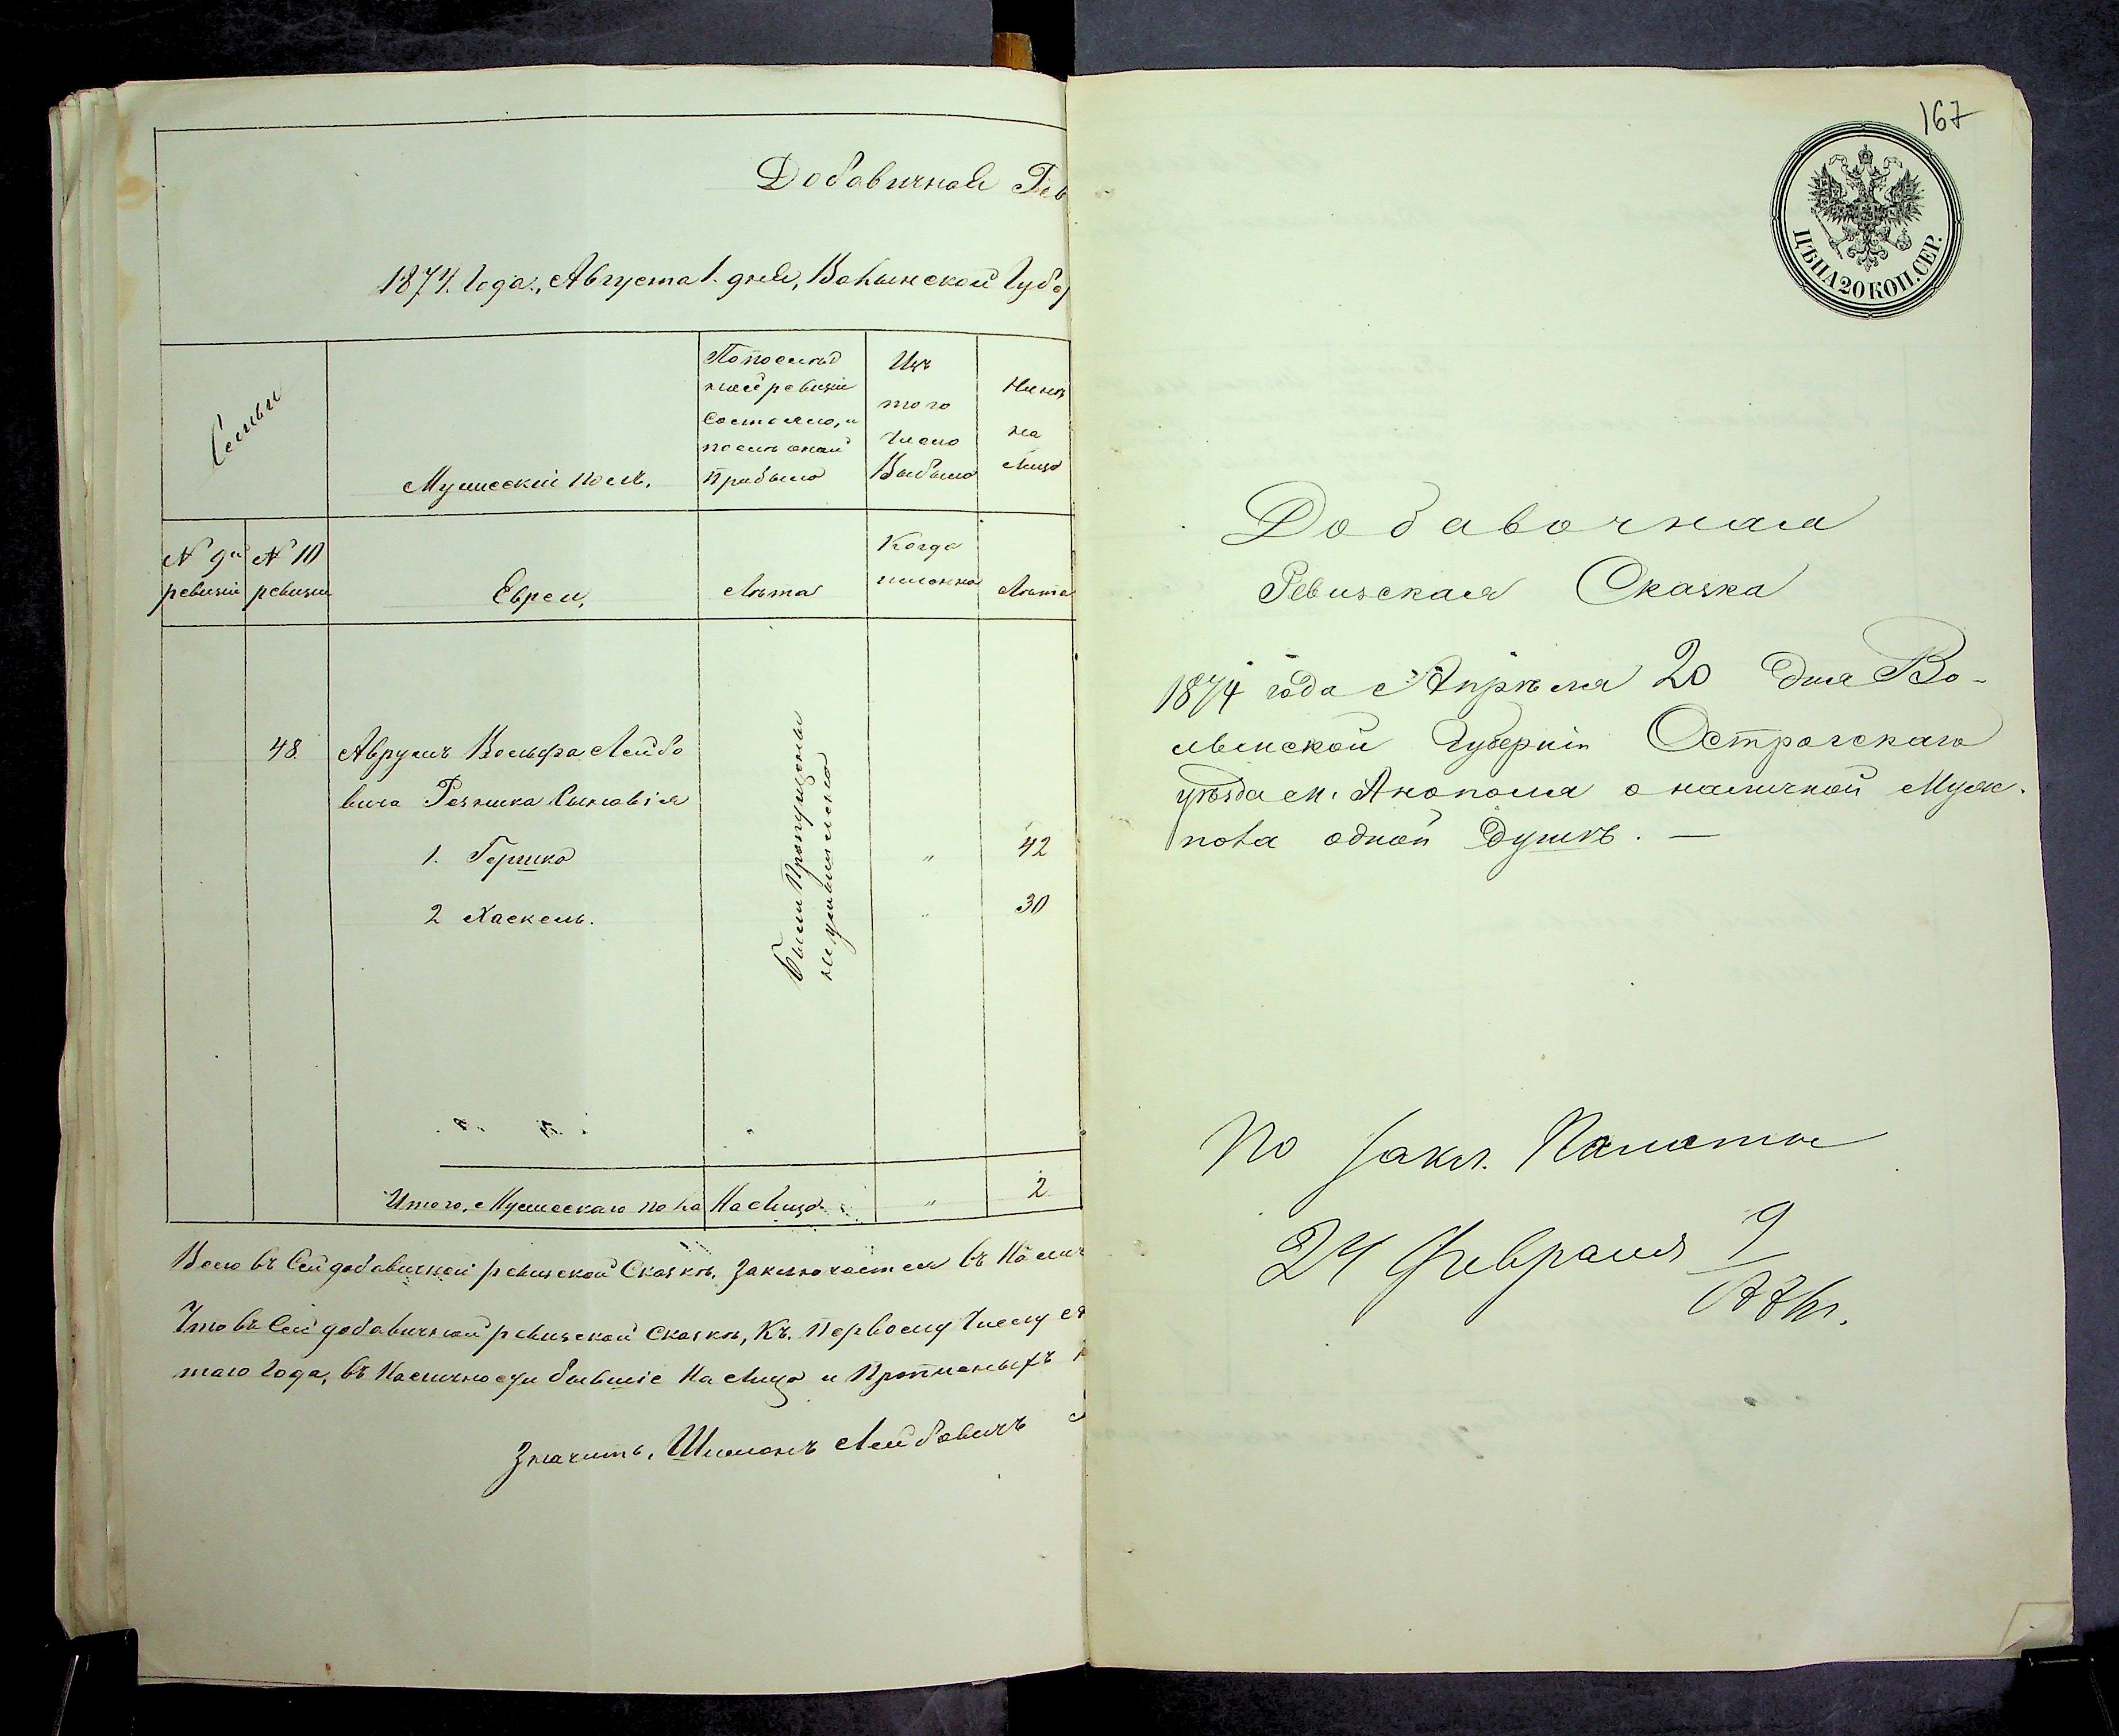 Добавичная Рев
1874. Года, Августа 1. дня, Волынской Губер
Семьи
Мужескій полъ.
По послѣд
ней ревизіи
состояло, и
послѣ оной
прибыло
Изъ
того
число
Выбыло
Нынѣ
на
Лицо
№ 9й
ревизіи
№ 10
ревизіи
Евреи,
Лѣта
Когда
именно
Лѣта
48.
Аврумъ Вольфа Лейбо
вича Резника Сыновія
1. Гершко
"
42
2 Хаскель.
"
30
Были Пропущены
Итого, Мужескаго пола На Лицо
"
2
Всего въ Сей добавичной ревизской Сказкѣ, Заключается въ Налич
Что въ Сей добавичной ревизской Сказкѣ, Къ. Первому Числу
таго Года, въ Наличности бывшіе На Лицо и Прописныхъ
Значитъ, Шимонъ Лейбовичъ
167
ЦѢНА 20 КОП. СЕР.
Добавочная
Ревизская Сказка
1874 года Апрѣля 20 дня Во-
лынской Губерніи Острогскаго
уѣзда м. Анополя о наличной Муж.
пола одной душѣ. —
По закл. Палаты
24 Февраля 9